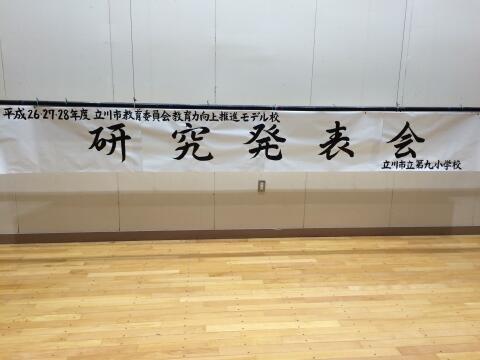 平成26・27・28年度 立川市教育委員会教育力向上推進モデル校
研究発表会
立川市立第九小学校